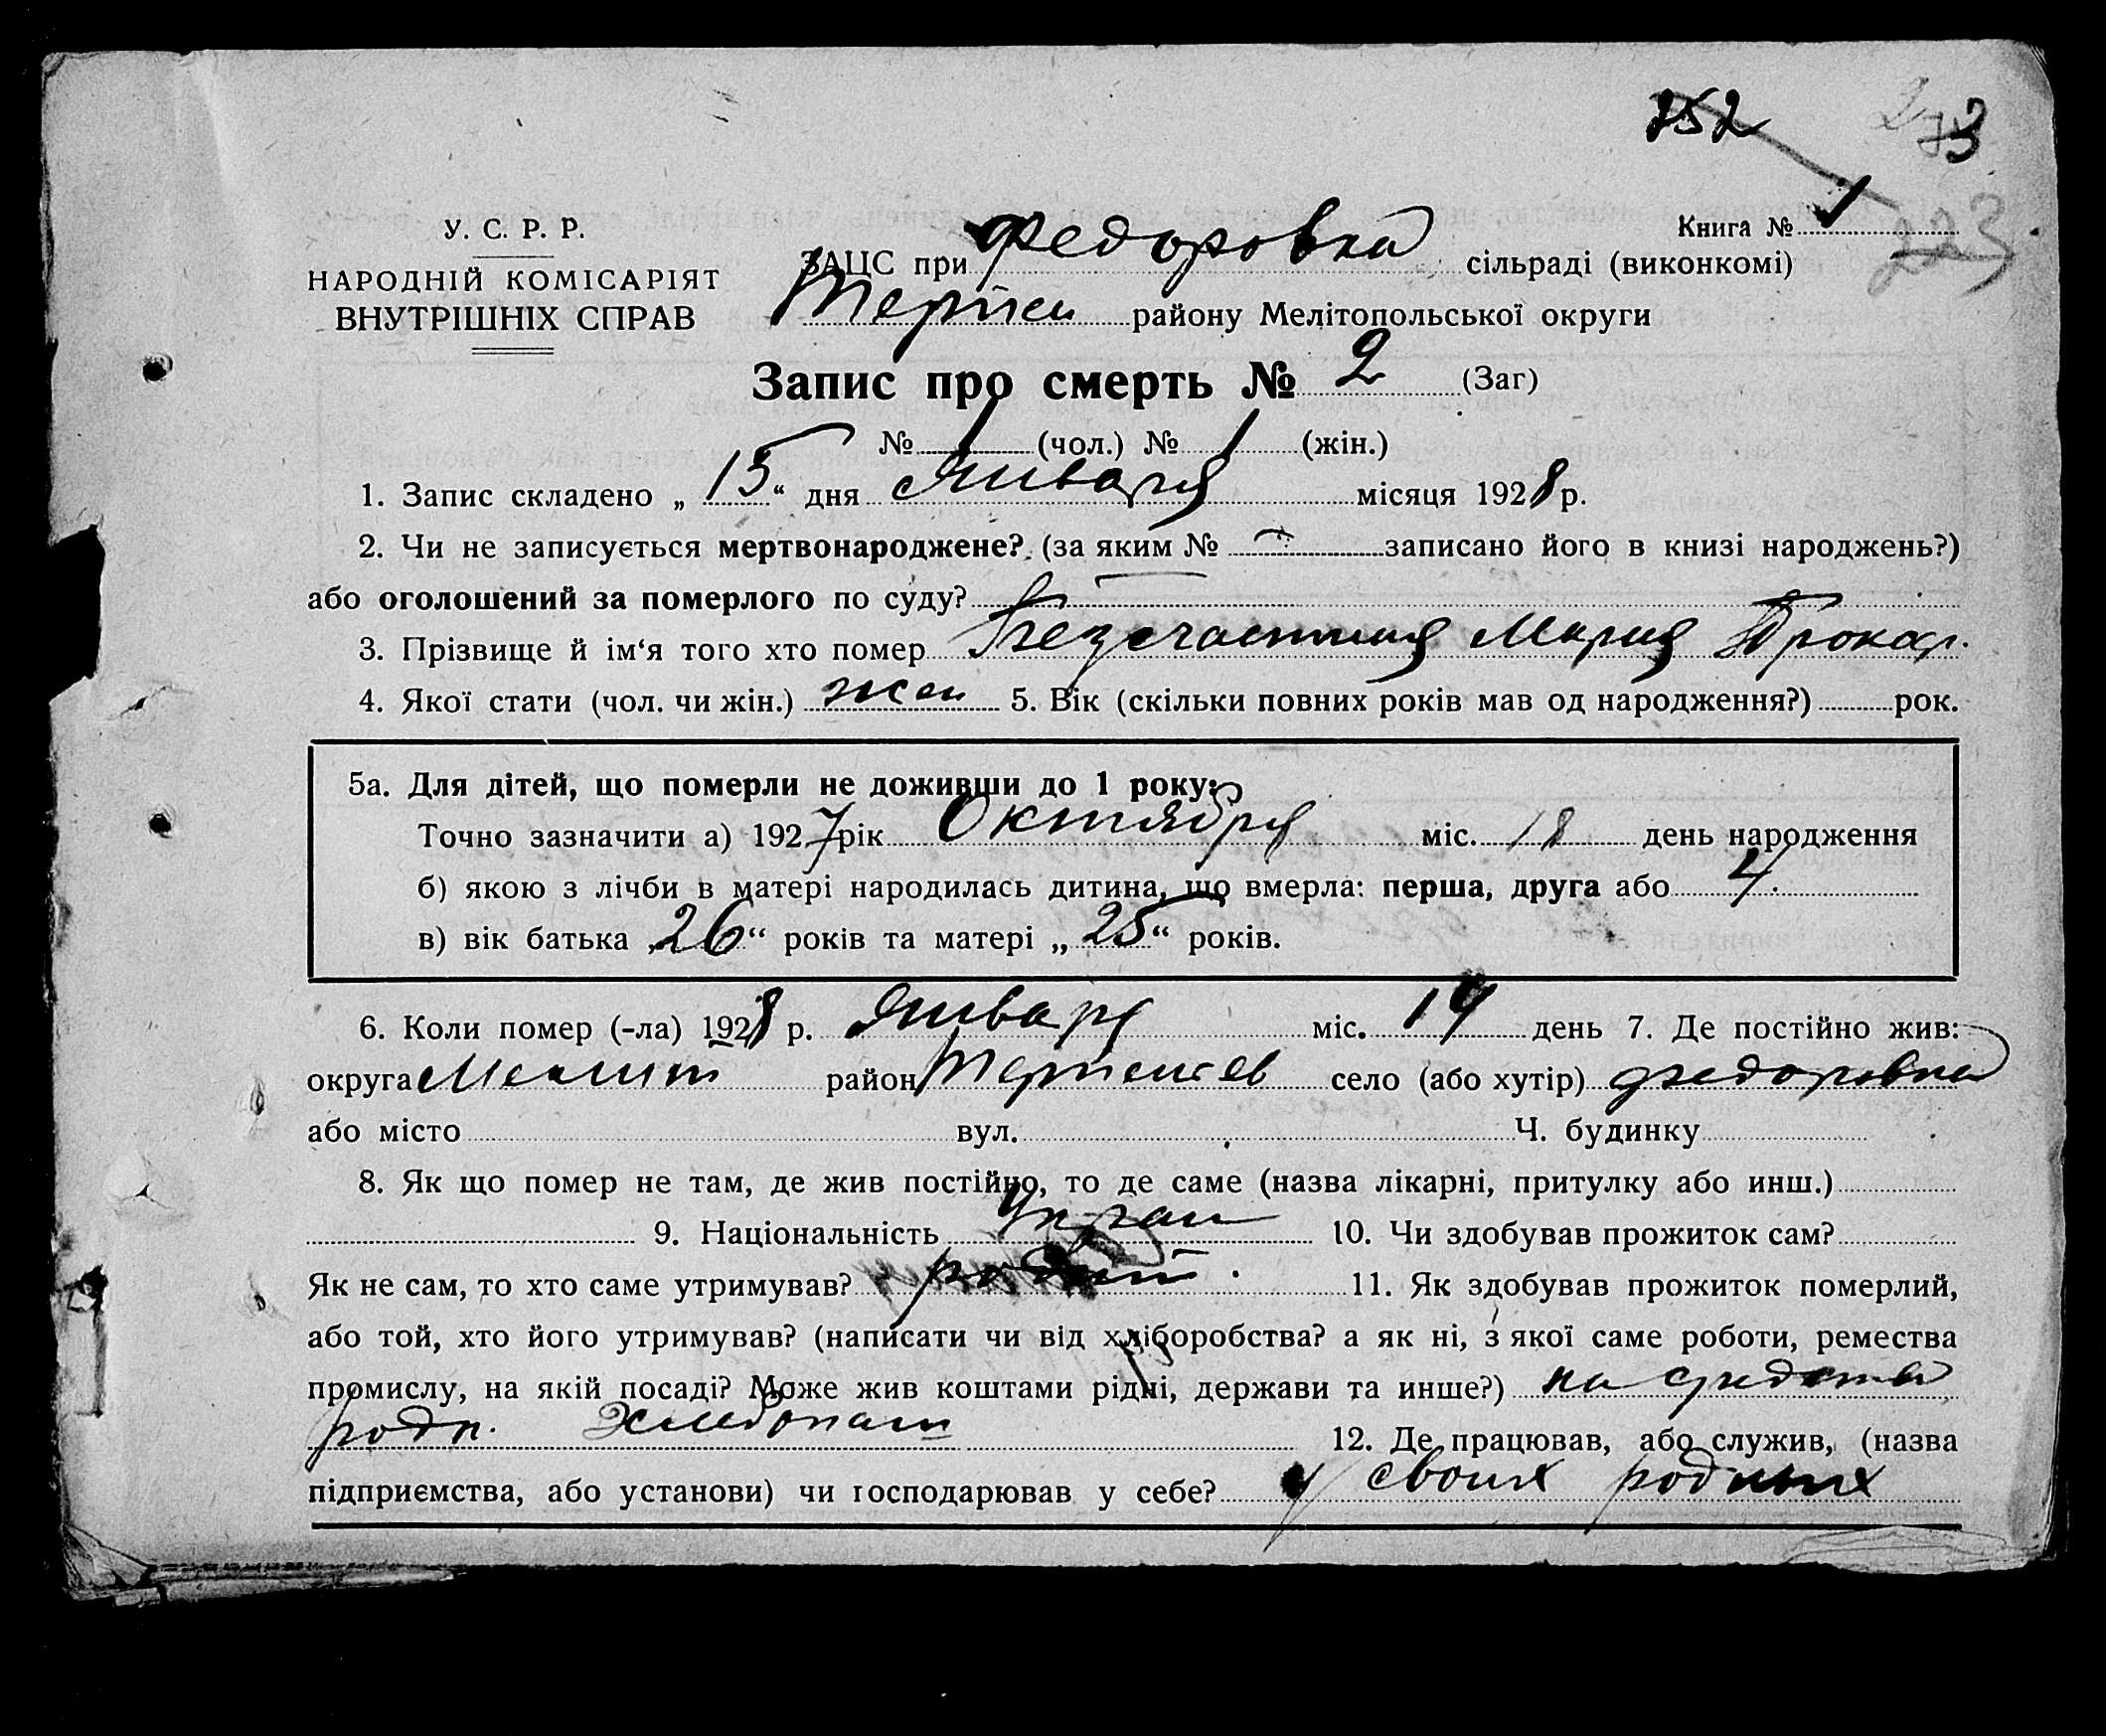 252 273
У. С. Р. Р.
НАРОДНІЙ КОМІСАРІЯТ
ВНУТРІШНІХ СПРАВ
Книга № 1
223
ЗАЦС при Федоровка сільраді (виконкомі)
району Мелітопольської округи
Запис про смерть № 2 (Заг)
№ 1 (чол.) № 1 (жін.)
1. Запис складено „ 15 “ дня Января місяця 1928 р.
2. Чи не записується мертвонароджене? (за яким № записано його в книзі народжень?)
або оголошений за померлого по суду?
3. Прізвище й ім‘я того хто помер Безсчастная Мария Прокоп.
4. Якої стати (чол. чи жін.) жен 5. Вік (скільки повних років мав од народження?) рок.
5а. Для дітей, що померли не доживши до 1 року:
Точно зазначити а) 1927 рік Октября міс. 18 день народження
б) якою з лічби в матері народилась дитина, що вмерла: перша, друга або 4.
в) вік батька „26“ років та матері „25“ років.
6. Коли помер (-ла) 1928 р. Январ міс. 14 день 7. Де постійно жив:
округа Мелит район село (або хутір) Федоровка
або місто вул. Ч. будинку
8. Як що помер не там, де жив постійно, то де саме (назва лікарні, притулку або инш.)
9. Національність Украин 10. Чи здобував прожиток сам?
Як не сам, то хто саме утримував? 11. Як здобував прожиток померлий,
або той, хто його утримував? (написати чи від хліборобства? а як ні, з якої саме роботи, ремества
промислу, на якій посаді? Може жив коштами рідні, держави та инше?) на средства
родн. Хлебопаш 12. Де працював, або служив, (назва
підприємства, або установи) чи господарював у себе? у своих родных